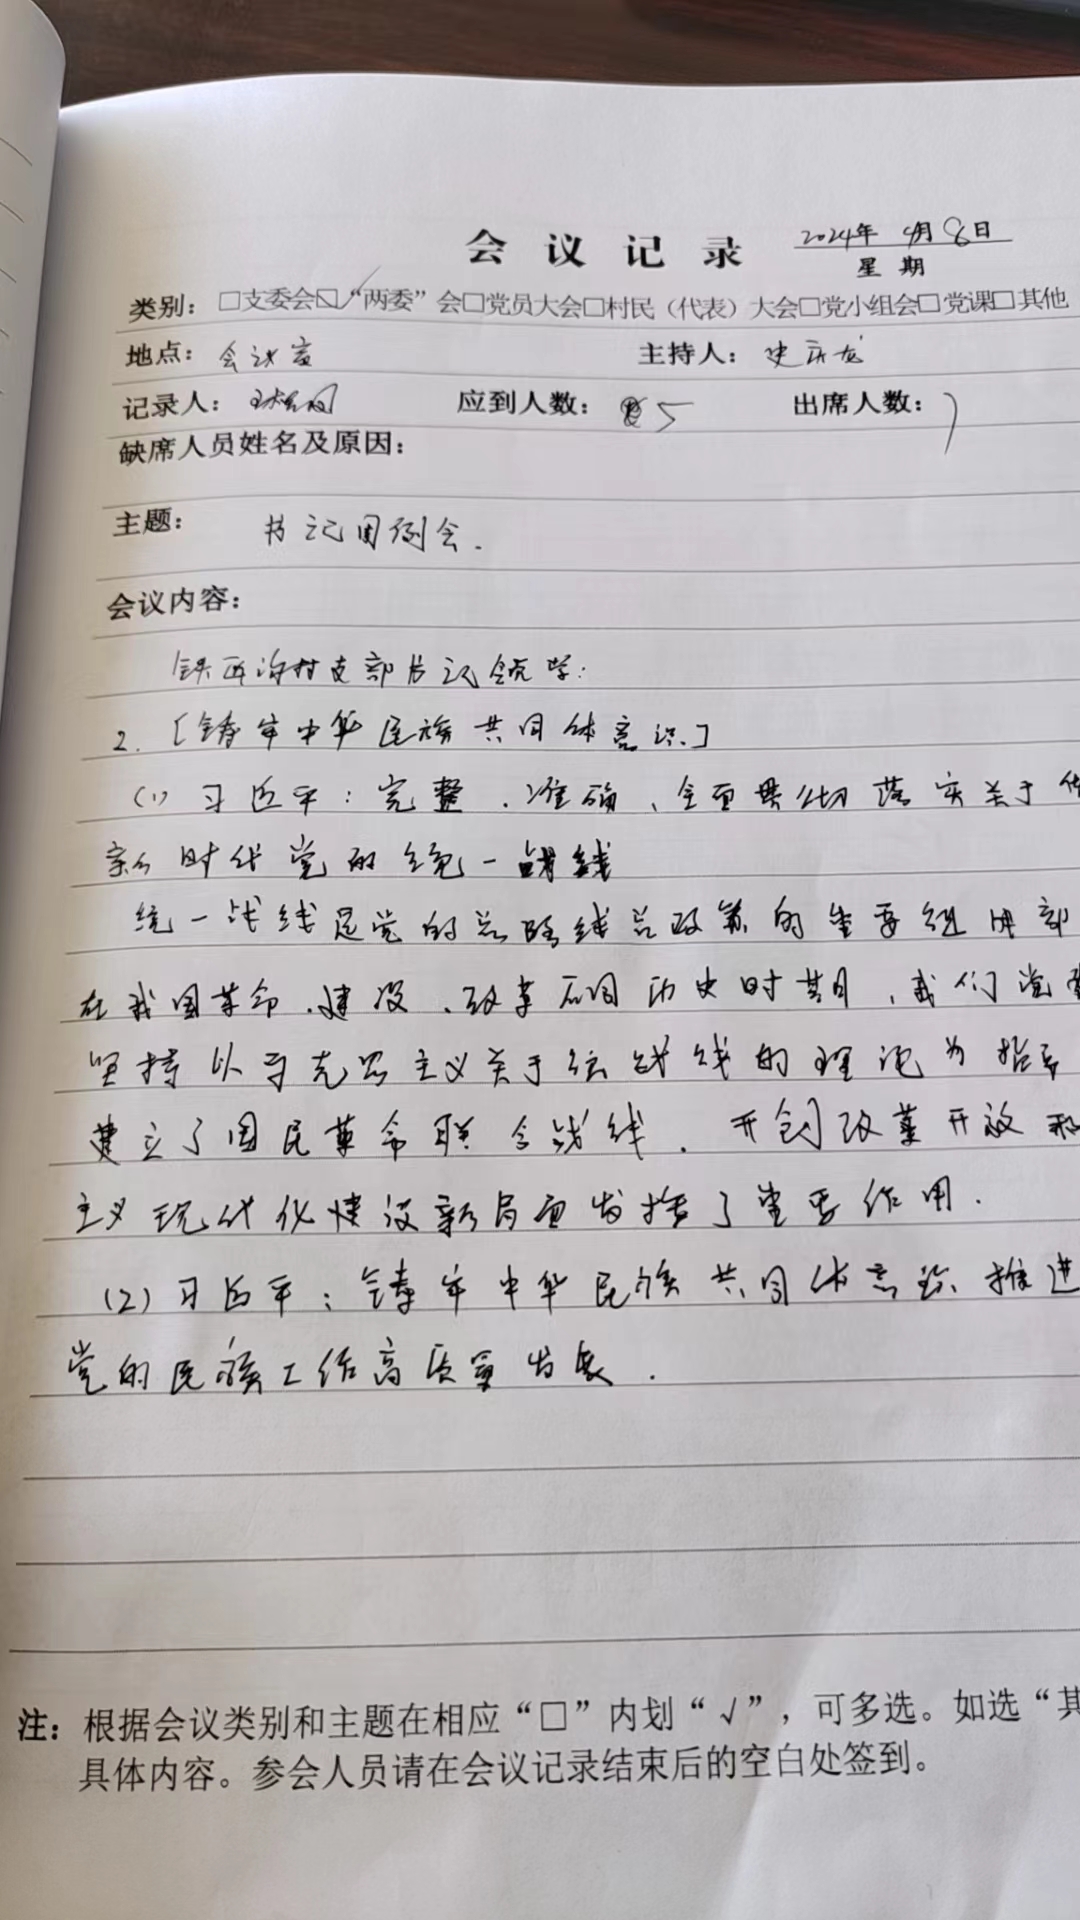 会议记录 2024年4月8日
星期
类别：□支委会☑“两委”会□党员大会□村民（代表）大会□党小组会□党课□其他
地点：会议室 主持人：史庆龙
记录人： 应到人数：5 出席人数：
缺席人员姓名及原因：
主题：书记周例会.
会议内容：
铁西沟村支部书记领学：
2.［铸牢中华民族共同体意识］
(1)习近平：完整、准确、全面贯彻落实关于
新时代党的统一战线
统一战线是党的总路线总政策的重要组成部
在我国革命、建设、改革不同历史时期，我们党
坚持以马克思主义关于统战线的理论为指导
建立了国民革命联合战线. 开创改革开放和
主义现代化建设新局面发挥了重要作用.
(2)习近平：铸牢中华民族共同体意识推进
党的民族工作高质量发展.
注：根据会议类别和主题在相应“□”内划“√”，可多选。如选“其
具体内容。参会人员请在会议记录结束后的空白处签到。